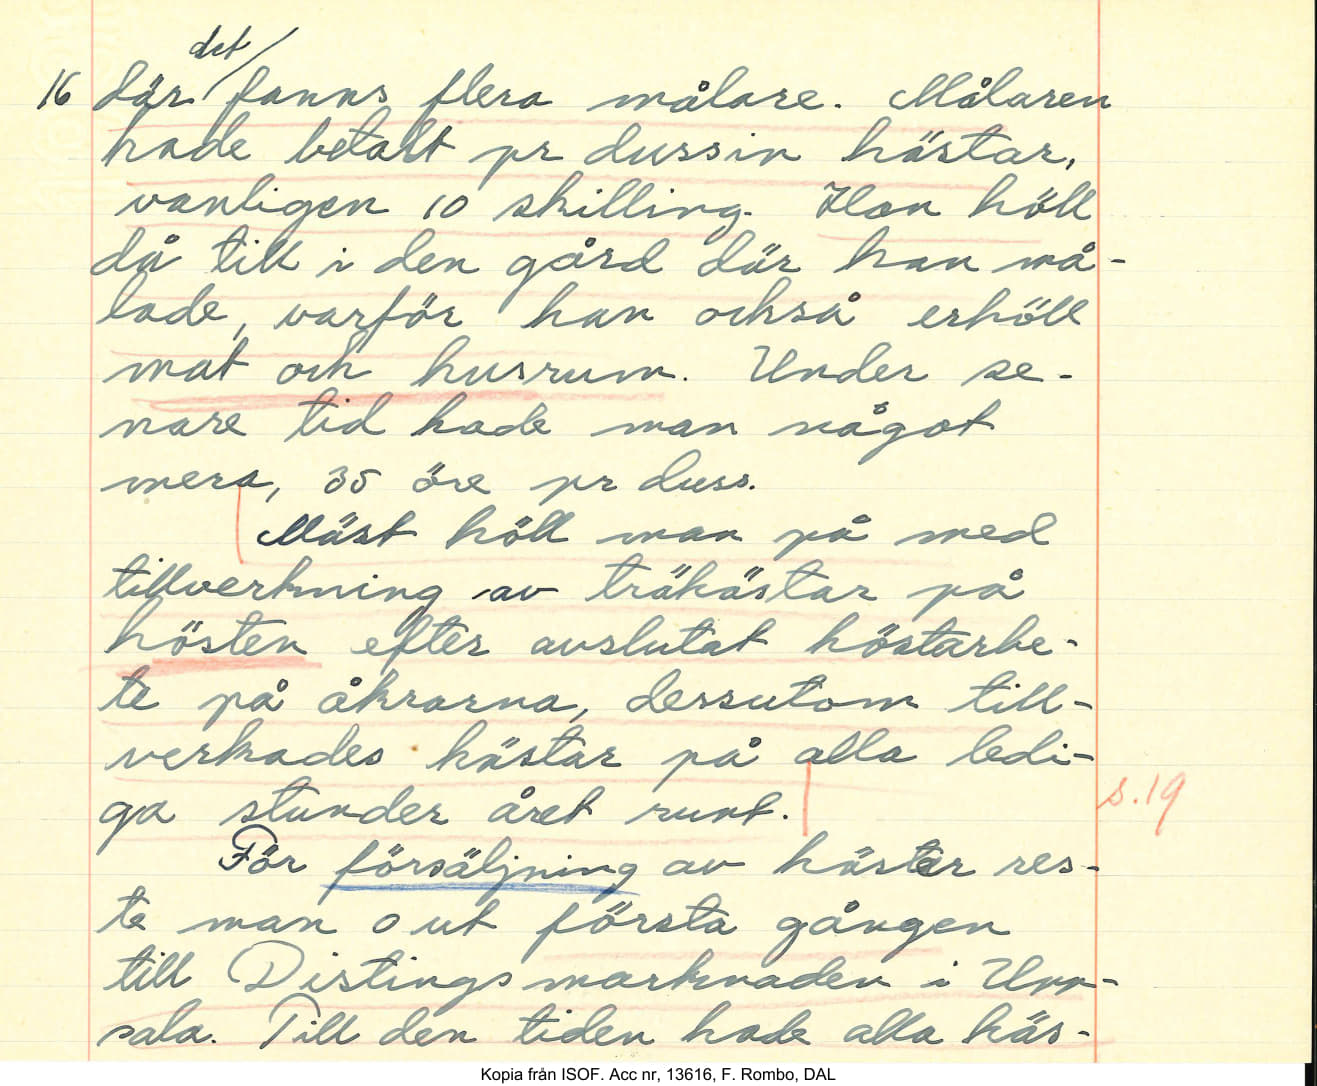 det/
16 där fanns flera målare. Målaren
hade betalt pr dussin hästar,
vanligen 10 skilling. Han höll
då till i den gård där han må-
lade, varför han också erhöll
mat och husrum. Under se-
nare tid hade man något
mera, 35 öre pr duss.
Mäst höll man på med
tillverkning av trähästar på
hösten efter avslutat höstarbe-
te på åkrarna, dessutom till-
verkades hästar på alla ledi-
ga stunder året runt.
s. 19
För försäljning av hästar res-
te man ut första gången
till Distingsmarknaden i Upp-
sala. Till den tiden hade alla häs-
Kopia från ISOF. Acc nr, 13616, F. Rombo, DAL